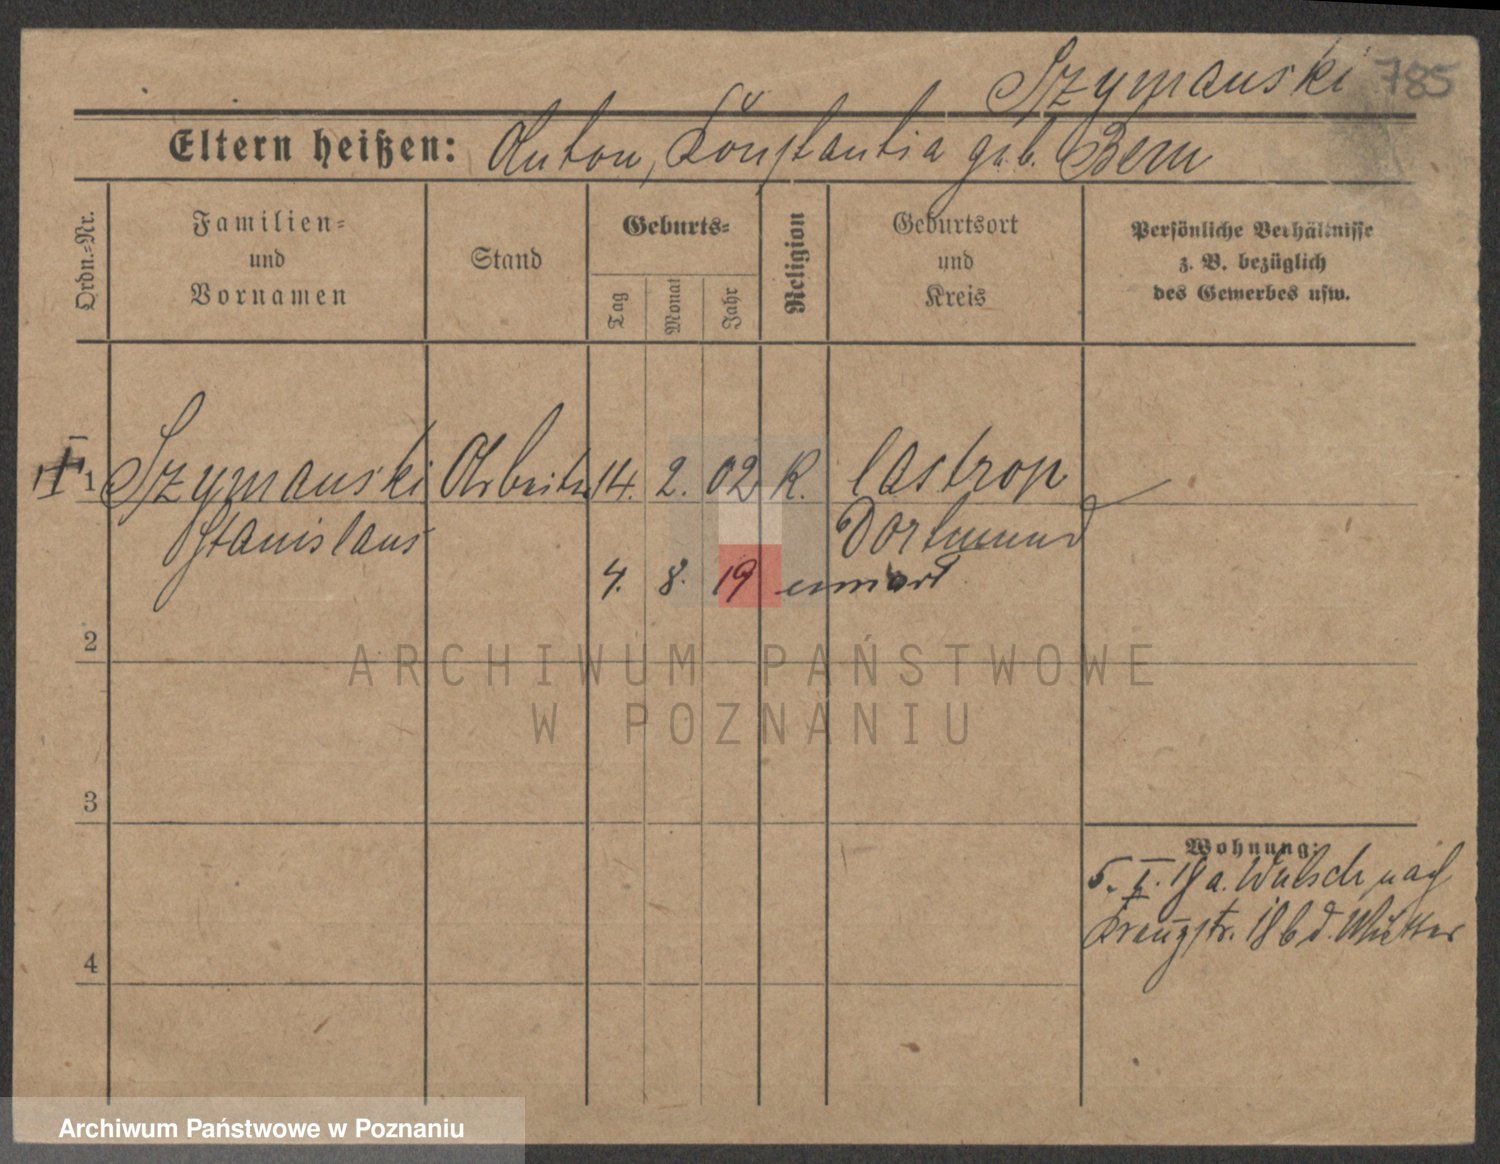 Szymanski 785
Eltern heißen: Anton, Konstantia geb. Bern
Ordn.-Nr.
Familien-
und
Vornamen
Stand
Geburts-
Tag
Monat
Jahr
Religion
Geburtsort
und
Kreis
Persönliche Verhältnisse
z. B. bezüglich
des Gewerbes usw.
1 Szymanski Arbeiter 14. 2. 02 K. Castrop
Stanislaus Dortmund
4. 8. 19
2
ARCHIWUM PAŃSTWOWE
W POZNANIU
3
Wohnung:
5. I. 19 a. nach
Kreuzstr. 18 b d. Mutter
4
Archiwum Państwowe w Poznaniu